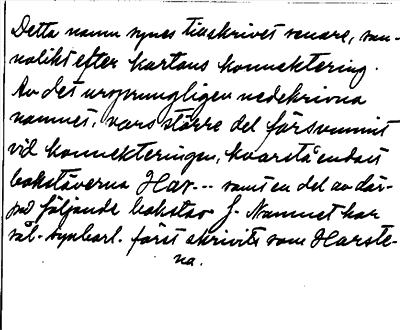 Detta namn synes tillskrivet senare, san-
nolikt efter kartans konnektering.
Av det ursprungligen nedskrivna
namnet, vars större del försvunnit
vid konnekteringen, kvarstå endast
bokstäverna Har--- samt en del av där-
på följande bokstav f. Namnet har
väl. synbarl. först skrivits som Harste-
na.